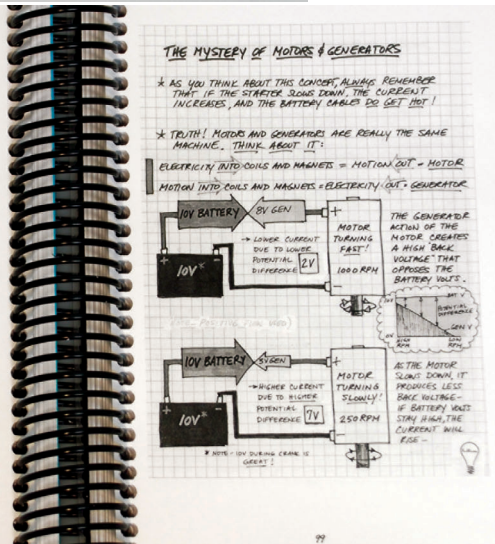 THE MYSTERY OF MOTORS & GENERATORS
* AS YOU THINK ABOUT THIS CONCEPT, ALWAYS REMEMBER
THAT IF THE STARTER SLOWS DOWN, THE CURRENT
INCREASES, AND THE BATTERY CABLES DO GET HOT!
* TRUTH! MOTORS AND GENERATORS ARE REALLY THE SAME
MACHINE. THINK ABOUT IT:
ELECTRICITY INTO COILS AND MAGNETS = MOTION OUT = MOTOR
MOTION INTO COILS AND MAGNETS = ELECTRICITY OUT = GENERATOR
10V BATTERY
8V GEN
+
MOTOR
TURNING
FAST!
1000 RPM
-
+ -
10V*
→ LOWER CURRENT
DUE TO LOWER
POTENTIAL
DIFFERENCE
2V
THE GENERATOR
ACTION OF THE
MOTOR CREATES
A HIGH BACK
VOLTAGE THAT
OPPOSES THE
BATTERY VOLTS.
10V
BAT V
POTENTIAL
DIFFERENCE
GEN V
0V
HIGH
RPM
LOW
RPM
10V BATTERY
3V GEN
+
MOTOR
TURNING
SLOWLY!
250 RPM
-
+ -
10V*
→ HIGHER CURRENT
DUE TO HIGHER
POTENTIAL
DIFFERENCE
7V
* NOTE - 10V DURING CRANK IS
GREAT!
AS THE MOTOR
SLOWS DOWN, IT
PRODUCES LESS
BACK VOLTAGE-
IF BATTERY VOLTS
STAY HIGH, THE
CURRENT WILL
RISE -
99